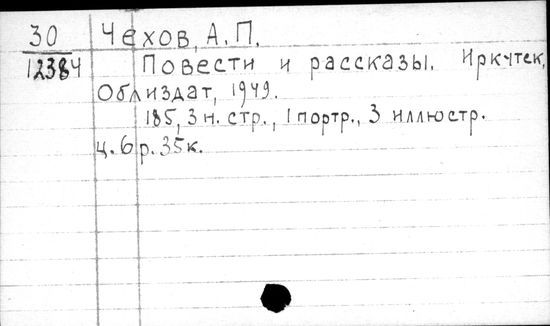 30 Чехов, А.П.
12384 Повести и рассказы. Иркутск,
Облиздат, 1949.
185, 3 н. стр., 1 портр., 3 иллюстр.
ц. 6 р. 35 к.